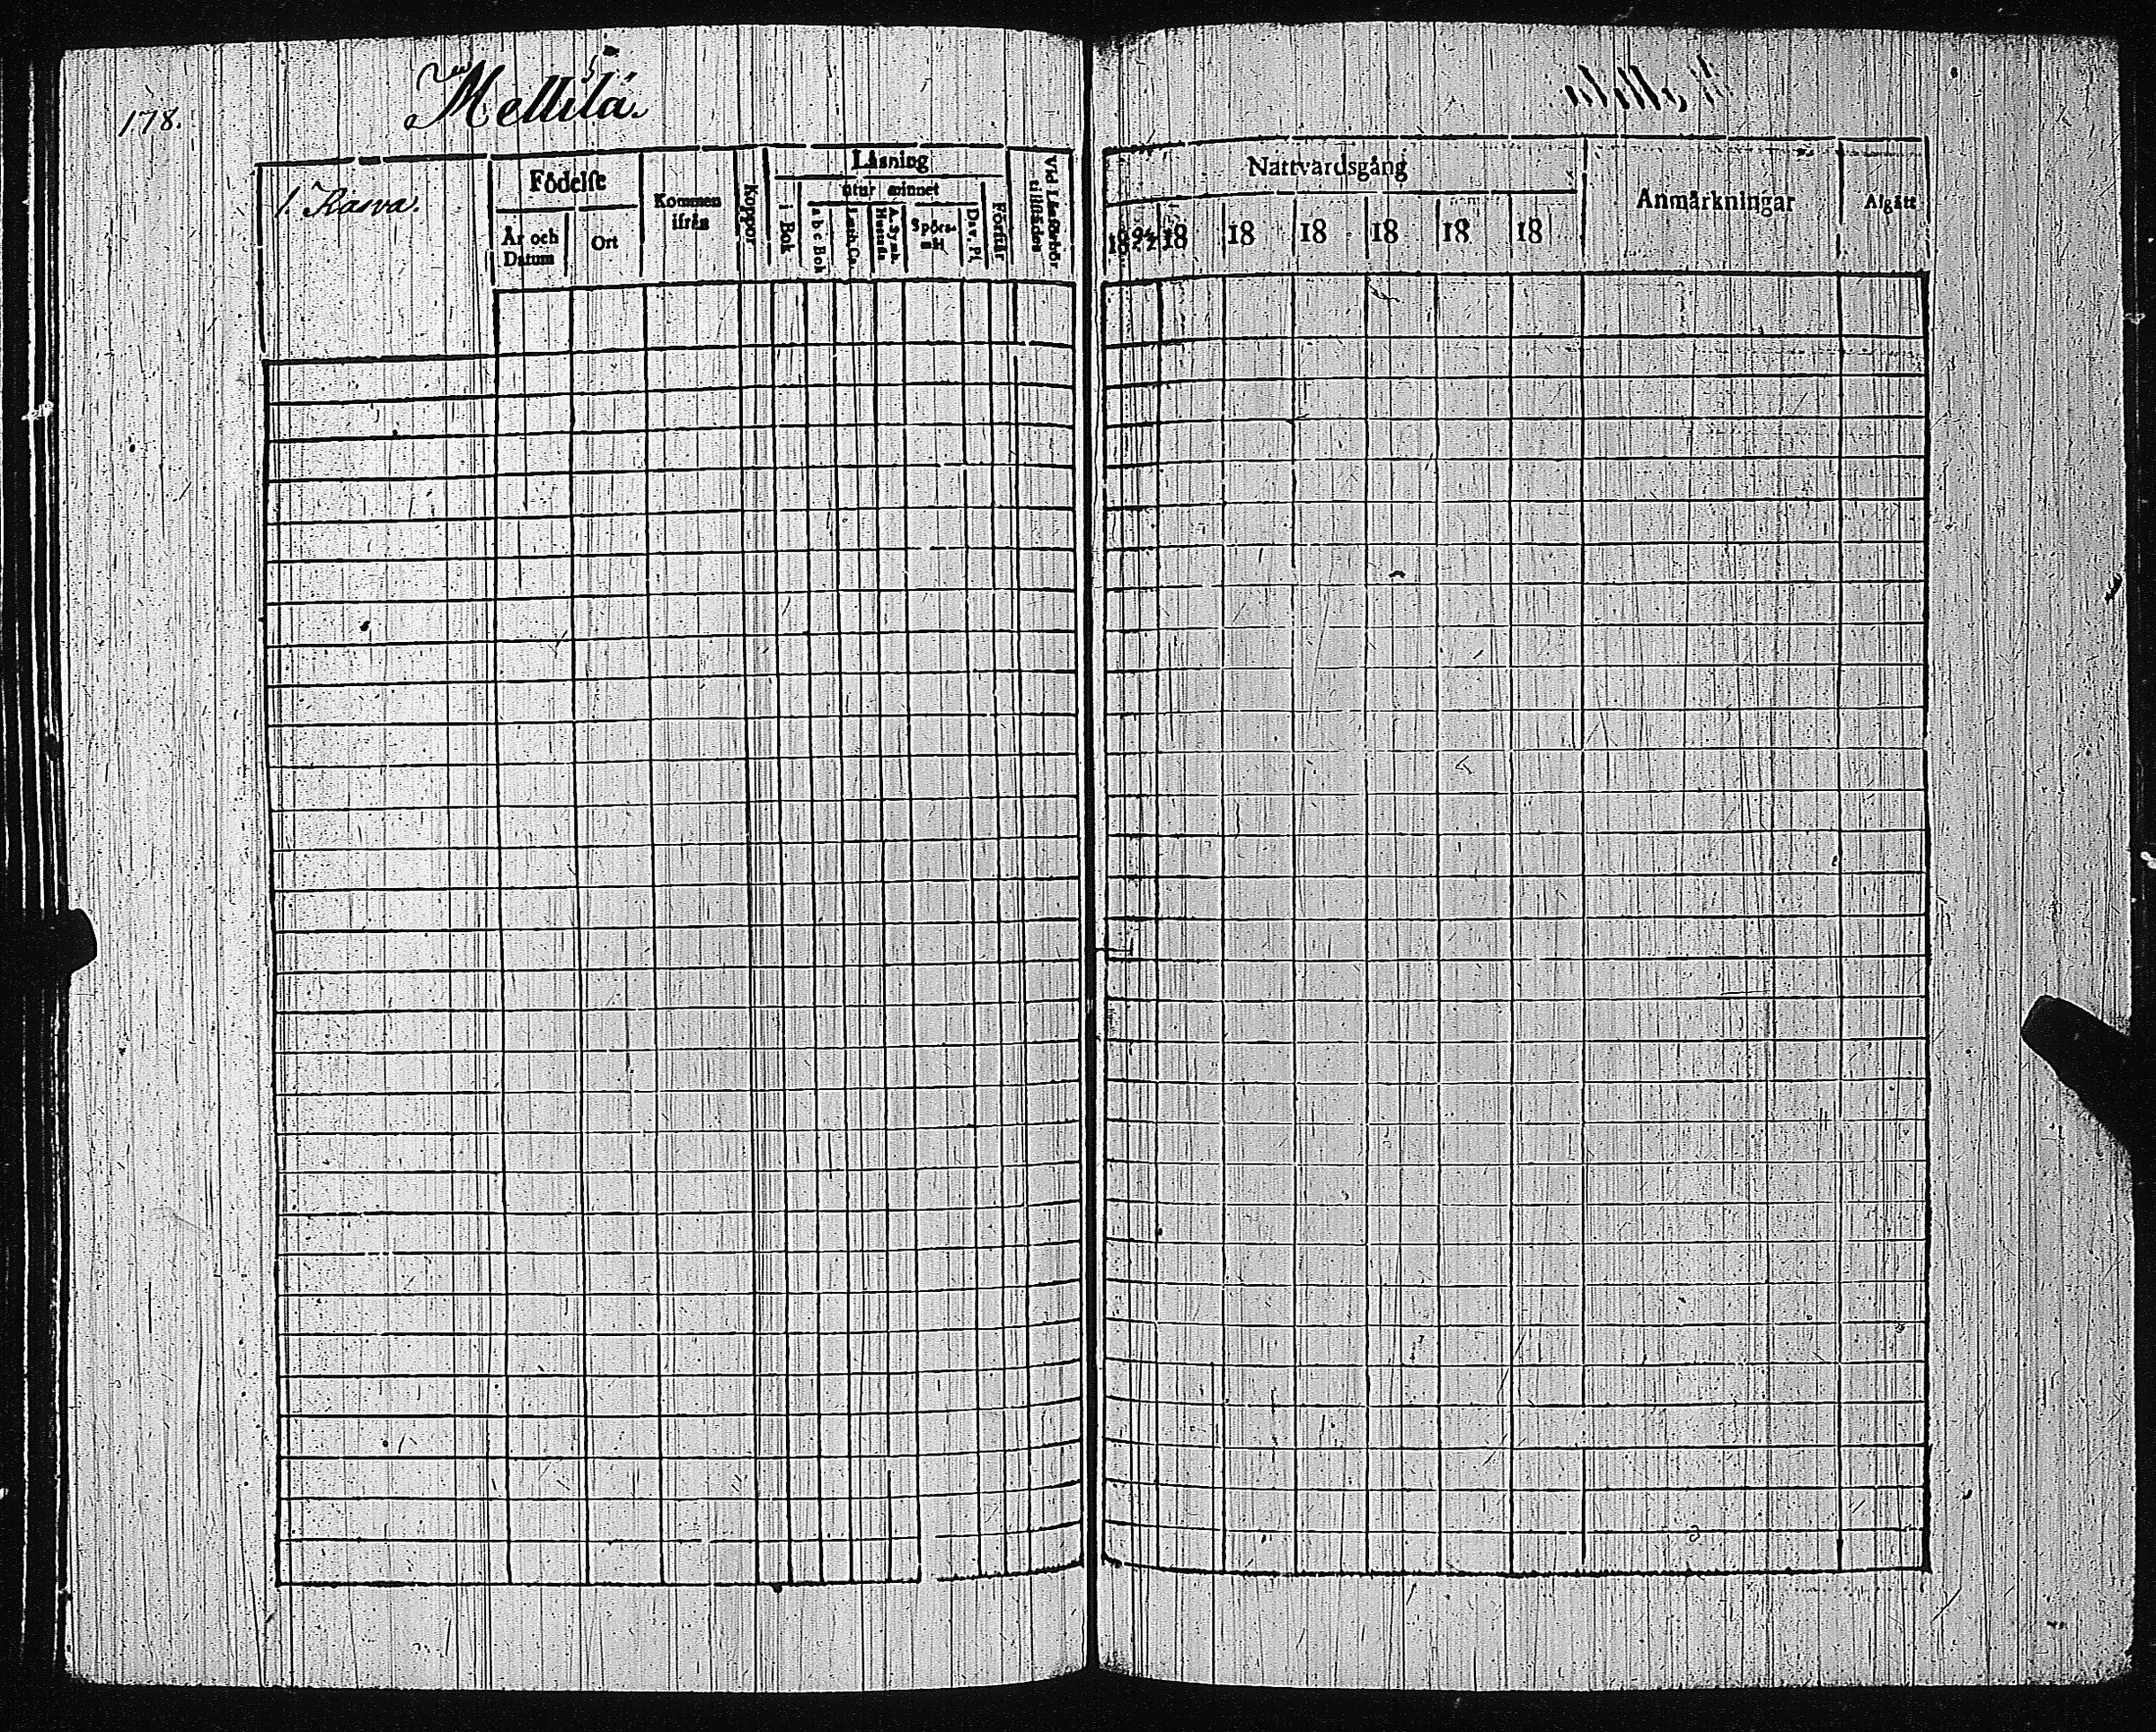 178.
Mellilä.
1. Rasva.
Födelse
År och Datum
Ort
Kommen ifrån
Koppor
Läsning
i Bok
utur minnet
a b c Bok
Luth. Ca.
A. Symb. Hustafla
Spörsmål
Dav. Ps.
Förstår
Vid Läsförhör tillstädes
Nattvardsgång
18 18 18 18 18 18 18
Anmärkningar
Afgått